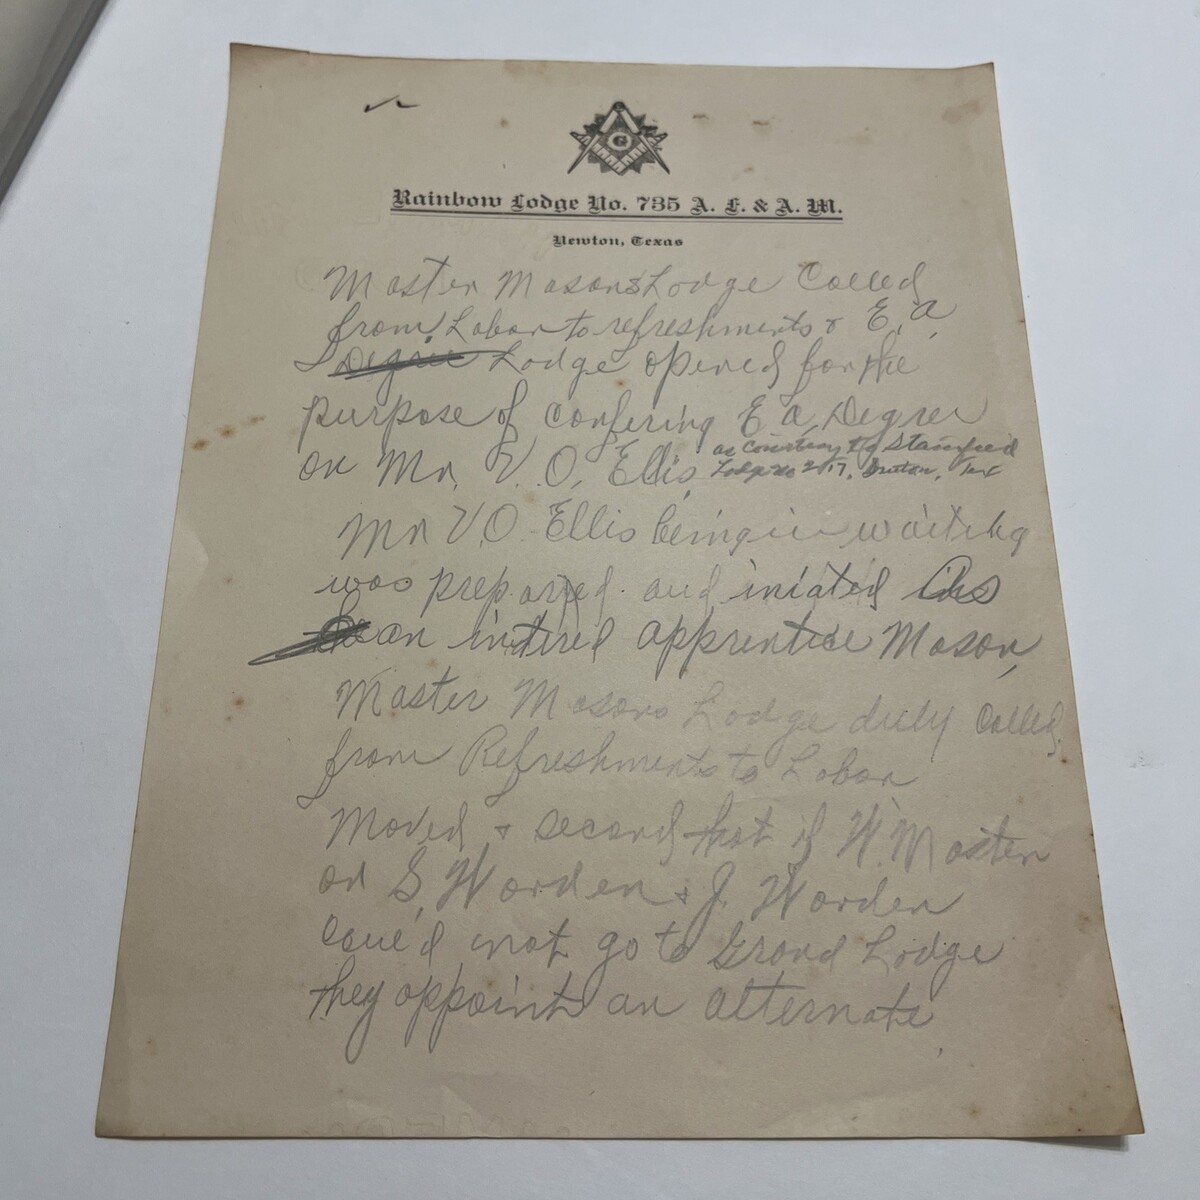 G
Rainbow Lodge No. 735 A. F. & A. M.
Newton, Texas
Master Masons Lodge Called
from Labor to refreshments & E. A.
Degree Lodge opened for the
purpose of confering E A, Degree
on Mr. V. O. Ellis, as Courtesy to
Lodge no 217, Tex
Mr V. O. Ellis being in waiting
was prepared and iniated as
an intired apprentice Mason,
Master Masons Lodge duly Called
from Refreshments to Labor
Moved & second that if W. Master
or S. Warden & J. Warden
Could not go to Grand Lodge
they appoint an alternate